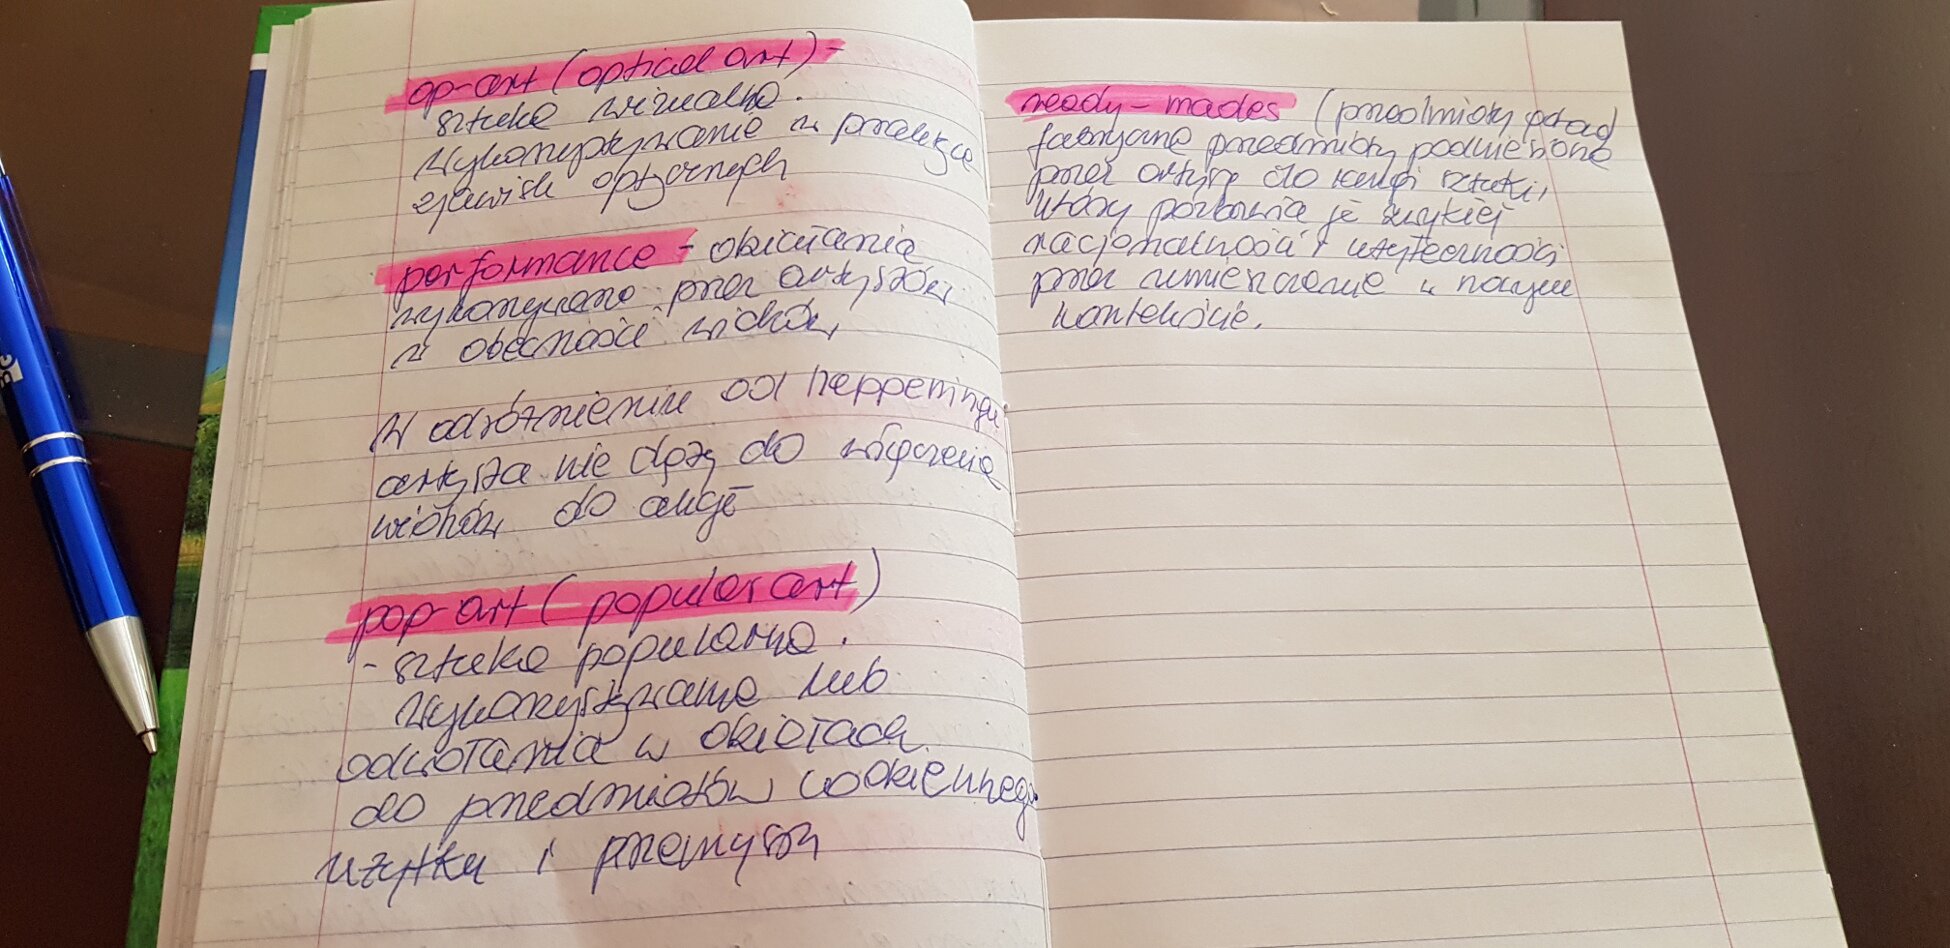 op-art (optical art) -
sztuka wizualna.
Wykorzystywanie w praktyce
zjawisk optycznych
performance - działania
wykonywane przez artystów
w obecności widzów
W odróżnieniu od happeningu
artysta nie dąży do włączenia
widzów do akcji
pop-art (popular art)
- sztuka popularna.
Wykorzystywanie lub
odwołania w dziełach
do przedmiotów codziennego
użytku i przemysłu
ready-mades (przedmioty
przedmioty podniesione
przez artystę do rangi sztuki,
który pozbawia je zwykłej
racjonalności i użyteczności
przez umieszczenie w nowym
kontekście.